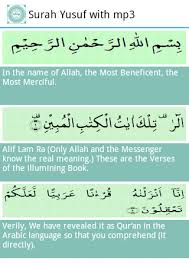 Surah Yusuf with mp3
بِسْمِ اللهِ الرَّحْمٰنِ الرَّحِيْمِ
In the name of Allah, the Most Beneficent, the
Most Merciful.
الٓرٰ ۚ تِلْكَ اٰيٰتُ الْكِتٰبِ الْمُبِيْنِ
Alif Lam Ra (Only Allah and the Messenger
know the real meaning.) These are the Verses
of the Illumining Book.
اِنَّاۤ اَنْزَلْنٰهُ قُرْءٰنًا عَرَبِيًّا لَّعَلَّكُمْ
تَعْقِلُوْنَ
Verily, We have revealed it as Qur'an in the
Arabic language so that you comprehend (It
directly).